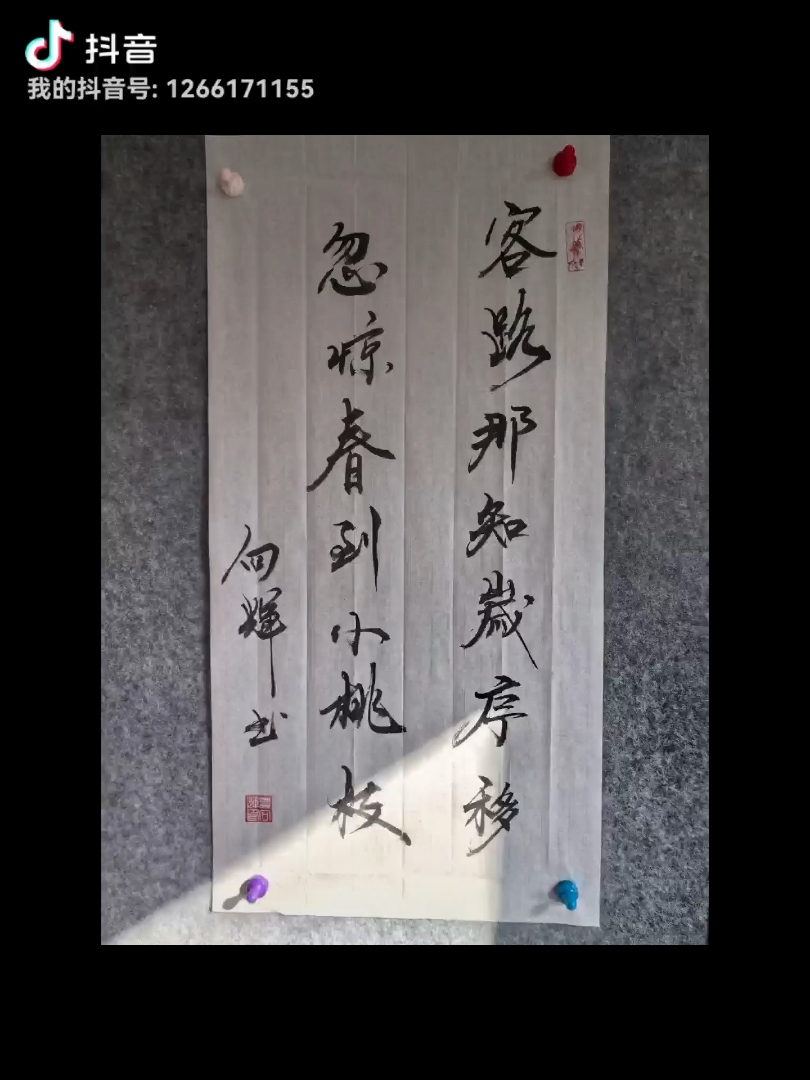 抖音
我的抖音号: 1266171155
客路那知歲序移
忽惊春到小桃枝
向輝书